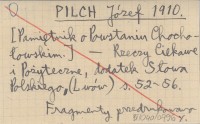 PILCH Józef 1910.
[Pamiętnik o Powstaniu Chocho-
łowskim.] — Rzeczy Ciekawe
i Pożyteczne, dodatek Słowa
Polskiego, (Lwów) s. 52-56.
Fragmenty przedrukowano